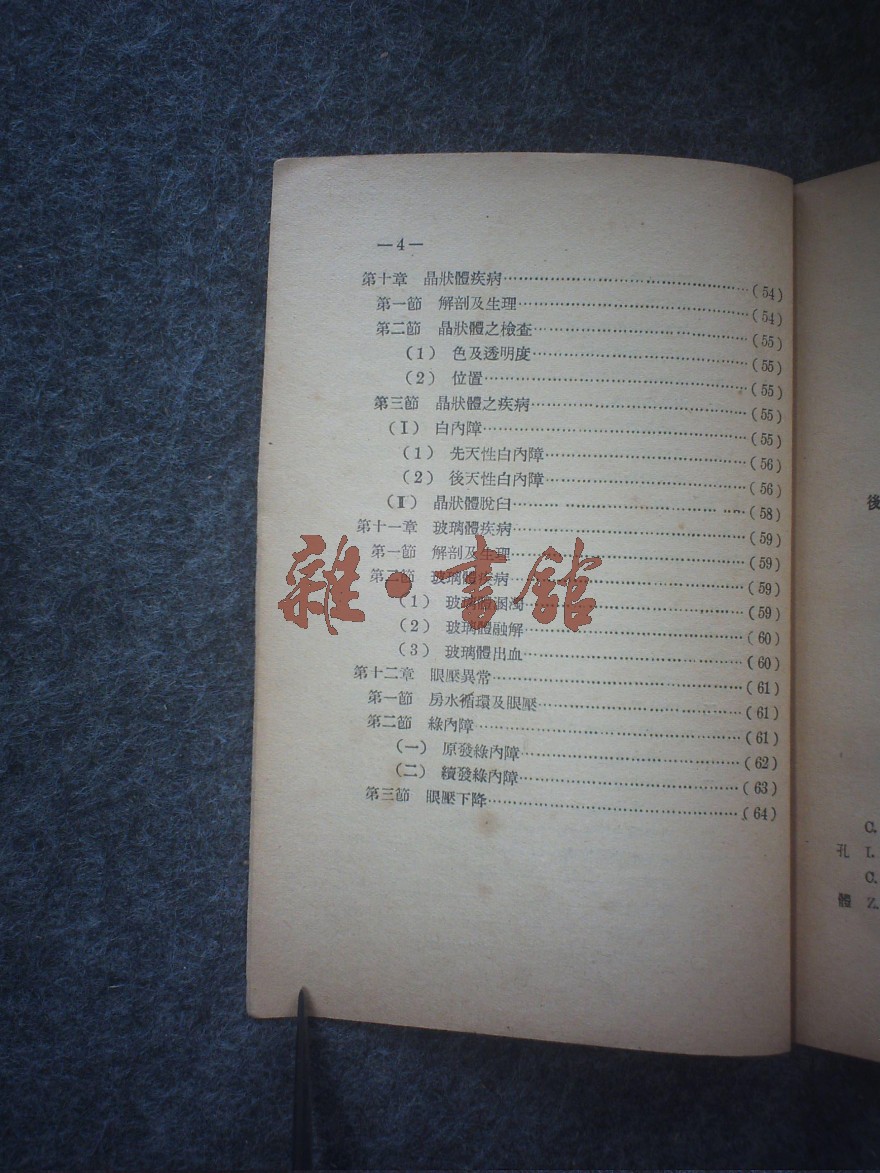 —4—
第十章 晶狀體疾病……(54)
第一節 解剖及生理……(54)
第二節 晶狀體之檢查……(55)
(1) 色及透明度……(55)
(2) 位置……(55)
第三節 晶狀體之疾病……(55)
(I) 白內障……(55)
(1) 先天性白內障……(56)
(2) 後天性白內障……(56)
(II) 晶狀體脫臼……(58)
第十一章 玻璃體疾病……(59)
第一節 解剖及生理……(59)
第二節 玻璃體疾病……(59)
(1) 玻璃體溷濁……(59)
(2) 玻璃體融解……(60)
(3) 玻璃體出血……(60)
第十二章 眼壓異常……(61)
第一節 房水循環及眼壓……(61)
第二節 綠內障……(61)
(一) 原發綠內障……(62)
(二) 續發綠內障……(63)
第三節 眼壓下降……(64)
雜·書館
後
C.
孔 I.
C.
體 Z.